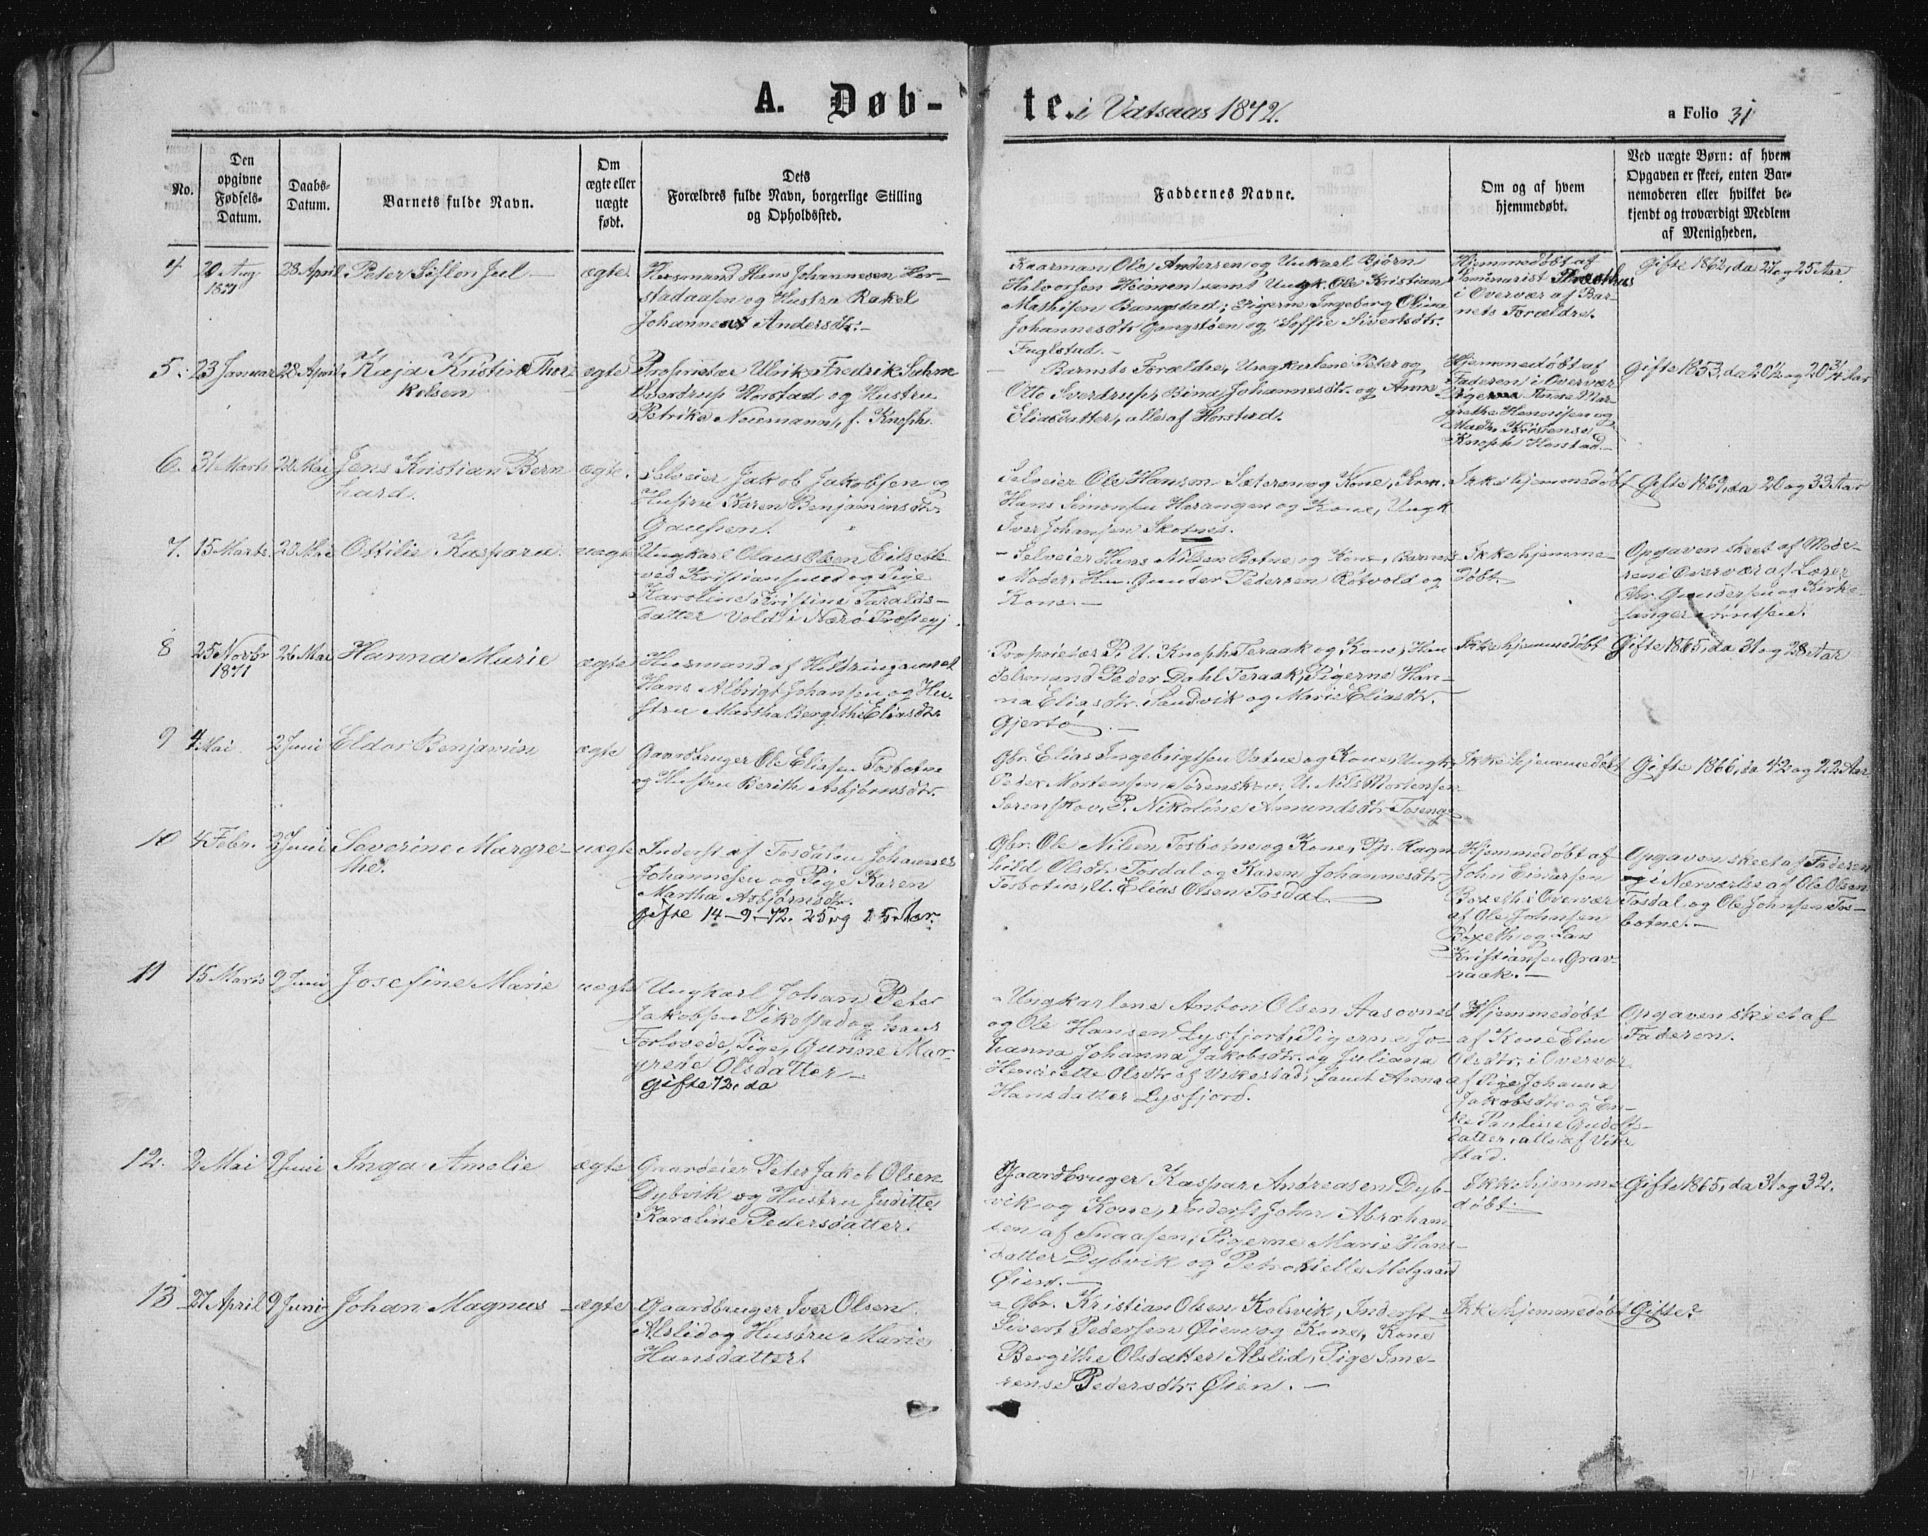 A. Døb-
te. i Vatsaas 1872.
a Folio 31
No.
Den
opgivne
Fødsels-
Datum.
Daabs-
Datum.
Barnets fulde Navn.
Om
ægte eller
uægte
født.
Dets
Forældres fulde Navn, borgerlige Stilling
og Opholdssted.
Faddernes Navne.
Om og af hvem
hjemmedøbt.
Ved uægte Børn: af hvem
Opgaven er skeet, enten Bar-
nemoderen eller hvilket be-
kjendt og troværdigt Medlem
af Menigheden.
4
20 Aug
1871
28 April
Peter Juel
ægte
Husmand Hans Johannesen Hor-
stadaasen og Hustru Rakel
Johanne Andersdtr.
Kaarman Ole Andersen og Unkarl Bjørn
Halvorsen Heimen samt Ungk. Ole Kristian
Mathisen Bangstad; Pigerne Ingeborg Olina
Johannesdtr. Gangstøen og Soffie Sivertsdtr.
Fuglstad.
Hjemmedøbt af
Seminarist
i Overvær af Bar-
nets Forældre.
Gifte 1862, da 27 og 25 Aar.
5.
23 Januar
28 April
Kaja Kristine Thor
kelsen
ægte
Proprietær Ulrik Fredrik Suhm
Sverdrup Horstad og Hustru
Petrike Neumann, f. Knoph.
Barnets Forældre, Ungkarlene Peter og
Otto Sverdrup, Bina Johannesdtr. og Anne
Eliasdatter, alle af Horstad.
Hjemmedøbt af
Faderen i Overvær
Pigerne Anne Mar-
grethe Henriksen og
Madm. Kristense
Knoph Horstad.
Gifte 1853, da 20½ og 20¾ Aar
6.
31 Marts
20 Mai
Jens Kristian Bern
hard.
ægte.
Selveier Jakob Jakobsen og
Hustru Karen Benjaminsdtr.
Gausen.
Selveier Ole Hansen Sæteren og Kone, Grm.
Hans Simonsen Horangen og Kone, Ungk
Iver Johansen Skotnes.
Ikke hjemmedøbt
Gifte 1869, da 20 og 33 Aar
7.
15 Marts
20 Mai
Ottilie Kaspara.
uægte
Ungkarl Olaus Olsen
ved Kristiansund og Pige
Karoline Kristine Taralds-
datter Vold i Nærø Præstegj.
Selveier Hans Nilsen Botne og Kone, Barnets
Moder, Gunder Pedersen Røtvold og
Kone.
Ikke hjemme-
døbt.
Opgaven skeet af Mode-
ren i Overvær af Lærer
Chr. Gundersen og Kirke-
sanger Arntsen.
8
25 Novbr
1871
26 Mai
Hanna Marie
ægte
Husmand af Hildringaunet
Hans Albrigt Johansen og Hu-
stru Martha Bergithe Eliasdtr.
Proprietær P. U. Knoph Teraak og Kone, Han
delsmand Peder Dahl Teraak, Pigerne Han-
na Eliasdtr. Sandvik og Marie Eliasdtr.
Gjertø.
Ikke hjemmedøbt
Gifte 1865, da 31 og 28 Aar
9
4 Mai.
2 Juni
Eldor Benjamin
ægte
Gaardbruger Ole Eliasen Tosbotne
og Hustru Berith Asbjørnsdtr.
Gbr. Elias Ingebrigtsen Vatne og Kone, Ungk.
Peder Mortensen Sørenskov. U. Nils Mortensen
Sørenskov. P. Nikoline Amundsdtr. Toseng.
Ikke hjemmedøbt
Gifte 1866, da 42 og 22 Aar
10
4 Febr.
2 Juni
Severine Margre-
the.
uægte
Inderst af Tosdalen Johannes
Johannesen og Pige Karen
Martha Asbjørnsdtr.
gifte 14-9-72. 25 og 25 Aar.
Gbr. Ole Nilsen Tosbotne og Kone, Pgr. Ragn
hild Olsdtr. Tosdal og Karen Johannesdtr.
Tosbotne, U. Elias Olsen Tosdal.
Hjemmedøbt af
John Einarsen
Røxeth i Overvær
af Ole Johnsen
Røxeth og Lars
Kristiansen Grav-
naak.
Opgaven skeet af Faderen
i Nærværelse af Ole Olsen
Tosdal og Ole Johnsen Tos-
botne.
11
15 Marts
9 Juni
Josefine Marie
uægte
Ungkarl Johan Peter
Jakobsen Vikestad og hans
Forlovede, Pige, Gunne Mar-
grete Olsdatter
gifte 72, da
Ungkarlene Anton Olsen Aasovnet
og Ole Hansen Lysfjord, Pigerne Jo-
hanna Johanna Jakobsdtr. og Juliana
Henriette Olsdtr. af Vikestad, samt Anna
Hansdatter Lysfjord.
Hjemmedøbt
af Kone Elen
Olsdtr. i Overvær
af Pige Johanna
Jakobsdtr. og En-
ke Pauline Gudolfs-
datter, alle af Vike
stad.
Opgaven skeet af
Faderen.
12.
2 Mai
9 Juni
Inga Amelie
ægte
Gaardeier Peter Jakob Olsen
Dybvik og Hustru Juditte
Karoline Pedersdatter.
Gaardbruger Kaspar Andreasen Dyb-
vik og Kone, Inderst John Abraham
sen af Snaasen, Pigerne Marie Hans-
datter Dybvik og Petronelle Melgaard
Øien.
Ikke hjemme
døbt.
Gifte 1865, da 31 og 32.
13
27 April
9 Juni
Johan Magnus
ægte
Gaardbruger Iver Olsen
Alslid og Hustru Marie
Hansdatter.
Gbr. Kristian Olsen Kolsvik, Inderst
Sivert Pedersen Øien og Kone, Kone
Bergithe Olsdatter Alslid, Pige Ime-
rense Pedersdtr. Øien.
Ikke hjemmedøbt
Gifte?